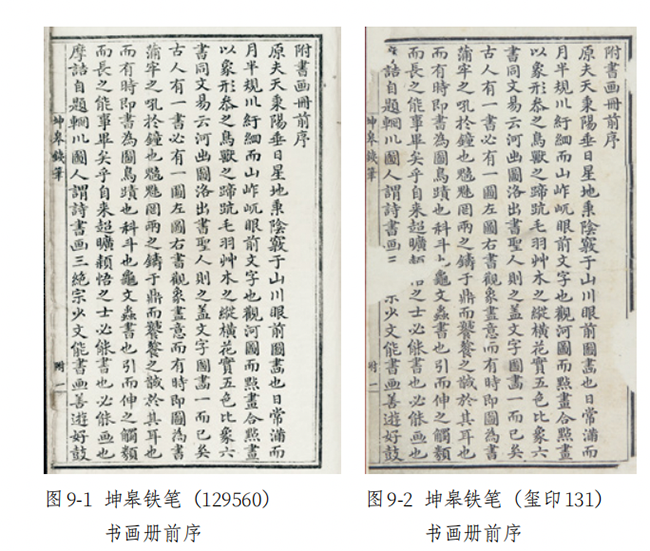 附書画冊前序
原夫天秉陽垂日星地秉陰竅于山川眼前圖畵也日常滿而
月半規川紆細而山岞㟯眼前文字也觀河圖而點畫合點畫
以象形叅之鳥獸之蹄䟽毛羽艸木之縱橫花實五色比象六
書同文易云河出圖洛出書聖人則之盖文字圖畵一而已矣
古人有一書必有一圖左圖右書觀象畫意而有時即圖為書
蒲牢之吼於鐘也魑魅罔兩之鑄于鼎而饕餮之誡於其耳也
而有時即書為圖鳥蹟也科斗也龜文蟲書也引而伸之觸類
而長之能事畢矣乎自来超曠穎悟之士必能書也必能画也
摩詰自題輞川圖人謂詩書画三絶宗少文能書画善遊好鼓
坤皋鐵筆
附一
附書画冊前序
原夫天秉陽垂日星地秉陰竅于山川眼前圖畵也日常滿而
月半規川紆細而山岞㟯眼前文字也觀河圖而點畫合點畫
以象形叅之鳥獸之蹄䟽毛羽艸木之縱橫花實五色比象六
書同文易云河出圖洛出書聖人則之盖文字圖畵一而已矣
古人有一書必有一圖左圖右書觀象畫意而有時即圖為書
蒲牢之吼於鐘也魑魅罔兩之鑄于鼎而饕餮之誡於其耳也
而有時即書為圖鳥蹟也科斗也龜文蟲書也引而伸之觸類
而長之能事畢矣乎自来超曠穎悟之士必能書也必能画也
詰自題輞川圖人謂詩書画宗少文能書画善遊好鼓
坤皋鐵筆
附一
图9-1 坤皋铁笔（129560）
书画册前序
图9-2 坤皋铁笔（玺印131）
书画册前序